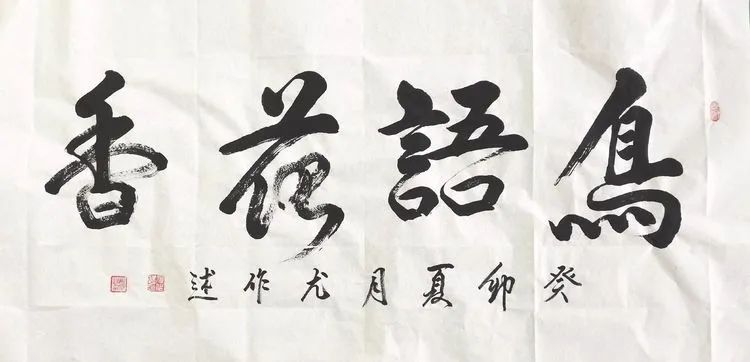 鳥語花香
癸卯夏月尤作述